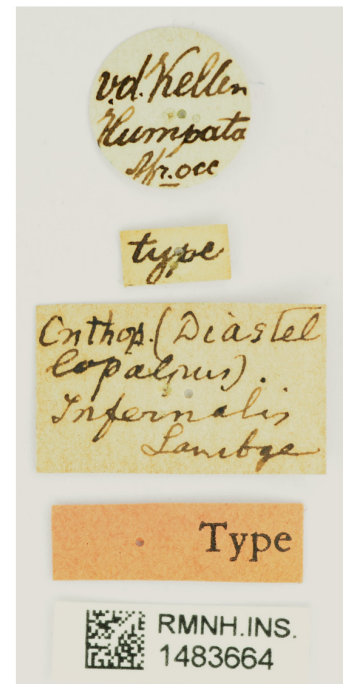 v.d. Kellen
Humpata
Afr. occ
type
Onthop. (Diastel
lopalpus).
Infernalis
Lansbge
Type
RMNH.INS.
1483664